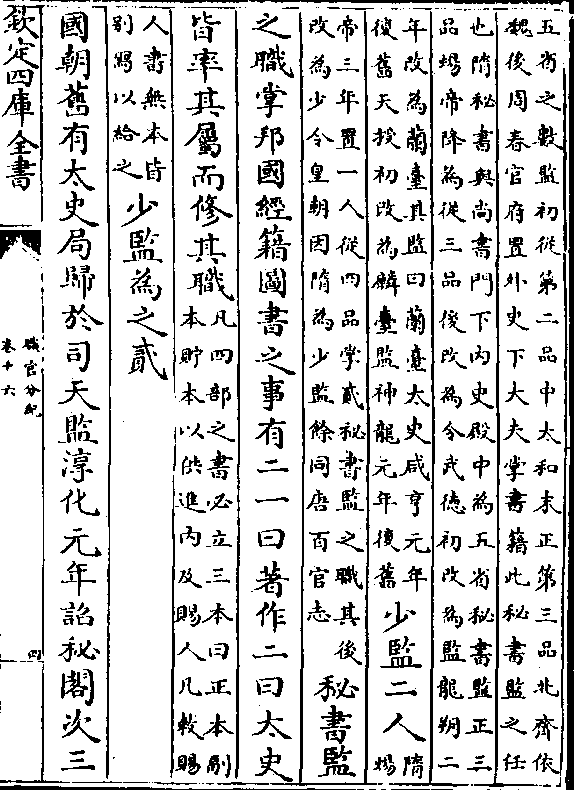 五省之數監初從第二品中太和末正第三品北齊依
魏後周春官府置外史下大夫掌書籍此秘書監之任
也隋秘書與尚書門下内史殿中為五省秘書監正三
品煬帝降為從三品後改為令武德初改為監龍朔二
年改為蘭臺其監曰蘭臺太史咸亨元年
復舊天授初改為麟臺監神龍元年復舊
少監二人
隋
煬
帝三年置一人從四品掌貳秘書監之職其後
改為少令皇朝因隋為少監餘同唐百官志
秘書監
之職掌邦國經籍圖書之事有二一曰著作二曰太史
皆率其屬而修其職
凡四部之書必立三本曰正本副
本貯本以供進内及賜人凡敕賜
人書無本皆
别寫以給之
少監為之貳
國朝舊有太史局歸於司天監淳化元年詔秘閣次三
欽定四庫全書
職官分紀
卷十六
四